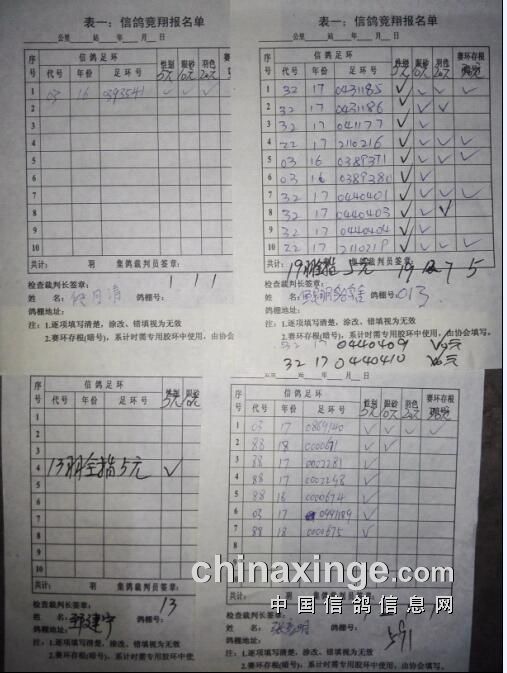 表一：信鸽竞翔报名单
公里 站 年 月 日
序号 信鸽足环 性别 眼砂 羽色 赛环存根
代号 年份 足环号 5元 10元 20元
1 03 16 0393541 ✓ ✓ ✓
2
3
4
5
6
7
8
9
10
共计： 羽 集鸽裁判员签章：
检查裁判长签章： 1 1 1
姓 名： 月清 鸽棚号：
鸽棚地址：
注：1.逐项填写清楚，涂改、错填视为无效
2.赛环存根(暗号)，系计时需专用胶环中
表一：信鸽竞翔报名单
公里 站 年 月 日
序号 信鸽足环 性别 眼砂 羽色 赛环存根
代号 年份 足环号 5元 10元 20元
1 32 17 0431185 ✓ ✓ ✓ ✓
2 32 17 0431186 ✓ ✓ ✓
3 32 17 041177 ✓ ✓
4 22 17 2110216 ✓ ✓ ✓ ✓
5 03 16 0389371 ✓ ✓ ✓ ✓
6 03 16 0389380 ✓ ✓
7 32 17 0440401 ✓ ✓ ✓ ✓
8 32 17 0440403 ✓ ✓ ✓
9 32 17 0440404 ✓ ✓
10 22 17 2110219 ✓ ✓ ✓ ✓
共计： 羽 集鸽裁判员签章：
19羽全指5元 19 12 7 5
检查裁判长签章：
姓 名： 鸽棚号：013
鸽棚地址：
注：1.逐项填写清楚，涂改、错填视为无效
2.赛环存根(暗号)，系计时需专用胶环中使用，由协会填写。
32 0440409
32 17 0440410
公里 站 年 月 日
序号 信鸽足环 性别 眼砂
代号 年份 足环号 5元 10元
1
2
3
4 13羽全指5元 ✓
5
6
7
8
9
10
共计： 羽 集鸽裁判员签章：
检查裁判长签章： 13
姓 名： 建宁 鸽棚号：
鸽棚地址：
注：1.逐项填写清楚，涂改、错填视为无效
2.赛环存根(暗号)，系计时需专用胶环中
年 月 日
序号 信鸽足环 性别 眼砂 羽色 赛环存根
代号 年份 足环号 5元 10元 20元
1 03 17 0869140 ✓ ✓ ✓ ✓
2 88 18 0000671 ✓ ✓
3 88 17 0002281 ✓
4 88 17 0002248 ✓
5 88 18 0000674 ✓
6 03 17 0991189 ✓
7 88 18 0000675 ✓
8
9
10
共计： 羽 集鸽裁判员签章：
检查裁判长签章：
姓 名： 鸽棚号：
鸽棚地址： 591
注：1.逐项填写清楚，涂改、错填视为无效
2.赛环存根(暗号)，系计时需专用胶环中使用，由协会填写。
chinaxinge.com
中国信鸽信息网